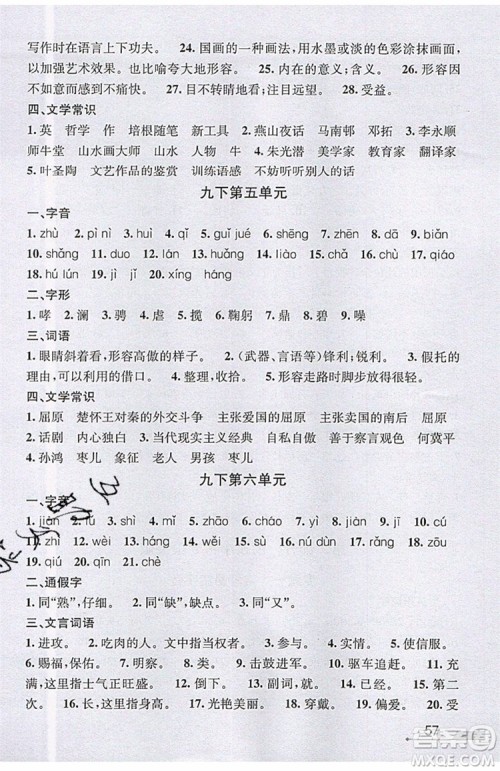 写作时在语言上下功夫。 24. 国画的一种画法，用水墨或淡的色彩涂抹画面，
以加强艺术效果。也比喻夸大地形容。 25. 内在的意义；含义。 26. 形容因
感到不自由而不痛快。 27. 目不转睛地看；注目远望。 28. 受益。
四、文学常识
1. 英 哲学 作 培根随笔 新工具 2. 燕山夜话 马南邨 邓拓 3. 李永顺
师牛堂 山水画大师 山水画 4. 朱光潜 美学家 教育家 翻译家
5. 叶圣陶 文艺作品的鉴赏 训练语感 不妨听听别人的话
九下第五单元
一、字音
1. zhù 2. pì nì 3. huì 4. qì 5. guǐ jué 6. shēng 7. zhēn 8. zēng 9. zhān
10. shǎng 11. duo 12. lán 13. hàn 14. yǔ 15. zhù 16. jū gōng 17. qiáo
18. hú lún 19. jì 20. xíng háng
二、字形
1. 哮 2. 澜 3. 骋 4. 雎 5. 咀 6. 鞠躬 7. 祟 8. 虐 9. 噪
三、词语
1. 眼睛斜着看，形容高傲的样子。 2. （武器、言语等）锋利；锐利。 3. 假托的
理由；可以利用的借口。 4. 收拾。 5. 形容走路时脚步放得很轻。
四、文学常识
1. 屈原 楚怀王对秦的外交斗争 主张爱国的屈原 主张卖国的南后 屈原
2. 话剧 内心独白 3. 当代现实主义经典 自私自傲 善于察言观色 何冀平
4. 孙鸿 枣儿 象征 老人 男孩 枣儿
九下第六单元
一、字音
3. shì 4. zhāo 5. kē 6. yí 7. yè 8. yì 9. bàng 10. cuò
12. wèi 13. wéi 14. chéng 15. sù 16. nú 17. shùn 18. zōu
19. qiú 20. cán 21. chè
二、通假字
1. 同“熟”，仔细。 2. 同“缺”，缺点。 3. 同“又”。
三、文言词语
1. 进攻。 2. 吃肉的人，这里指当权者。 3. 参与。 4. 实情。 5. 使信服。
6. 赐福，保佑。 7. 明察。 8. 类。 9. 击鼓。 10. 驱车追赶。 11. 充
满，这里指士气正旺盛。 12. 倒下。 13. 副词，就。 14. 表态。 15. 第二
次。 16. 长，这里指身高。 17. 光艳美丽。 18. 穿戴。 19. 偏爱。 20. 受
57